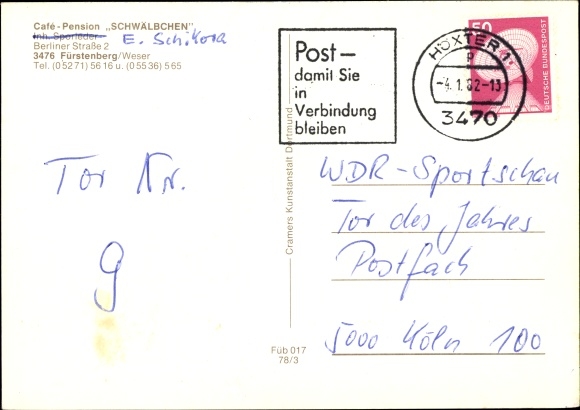 Café - Pension „SCHWÄLBCHEN"
Inh. Sporleder E. Schikora
Berliner Straße 2
3476 Fürstenberg/Weser
Tel. (05271) 5616 u. (05536) 565
Tor Nr.
9
Cramers Kunstanstalt Dortmund
Füb 017
78/3
Post –
damit Sie
in
Verbindung
bleiben
HÖXTER 1
-4.1.82-13
3470
50
DEUTSCHE BUNDESPOST
WDR-Sportschau
Tor des Jahres
Postfach
5000 Köln 100